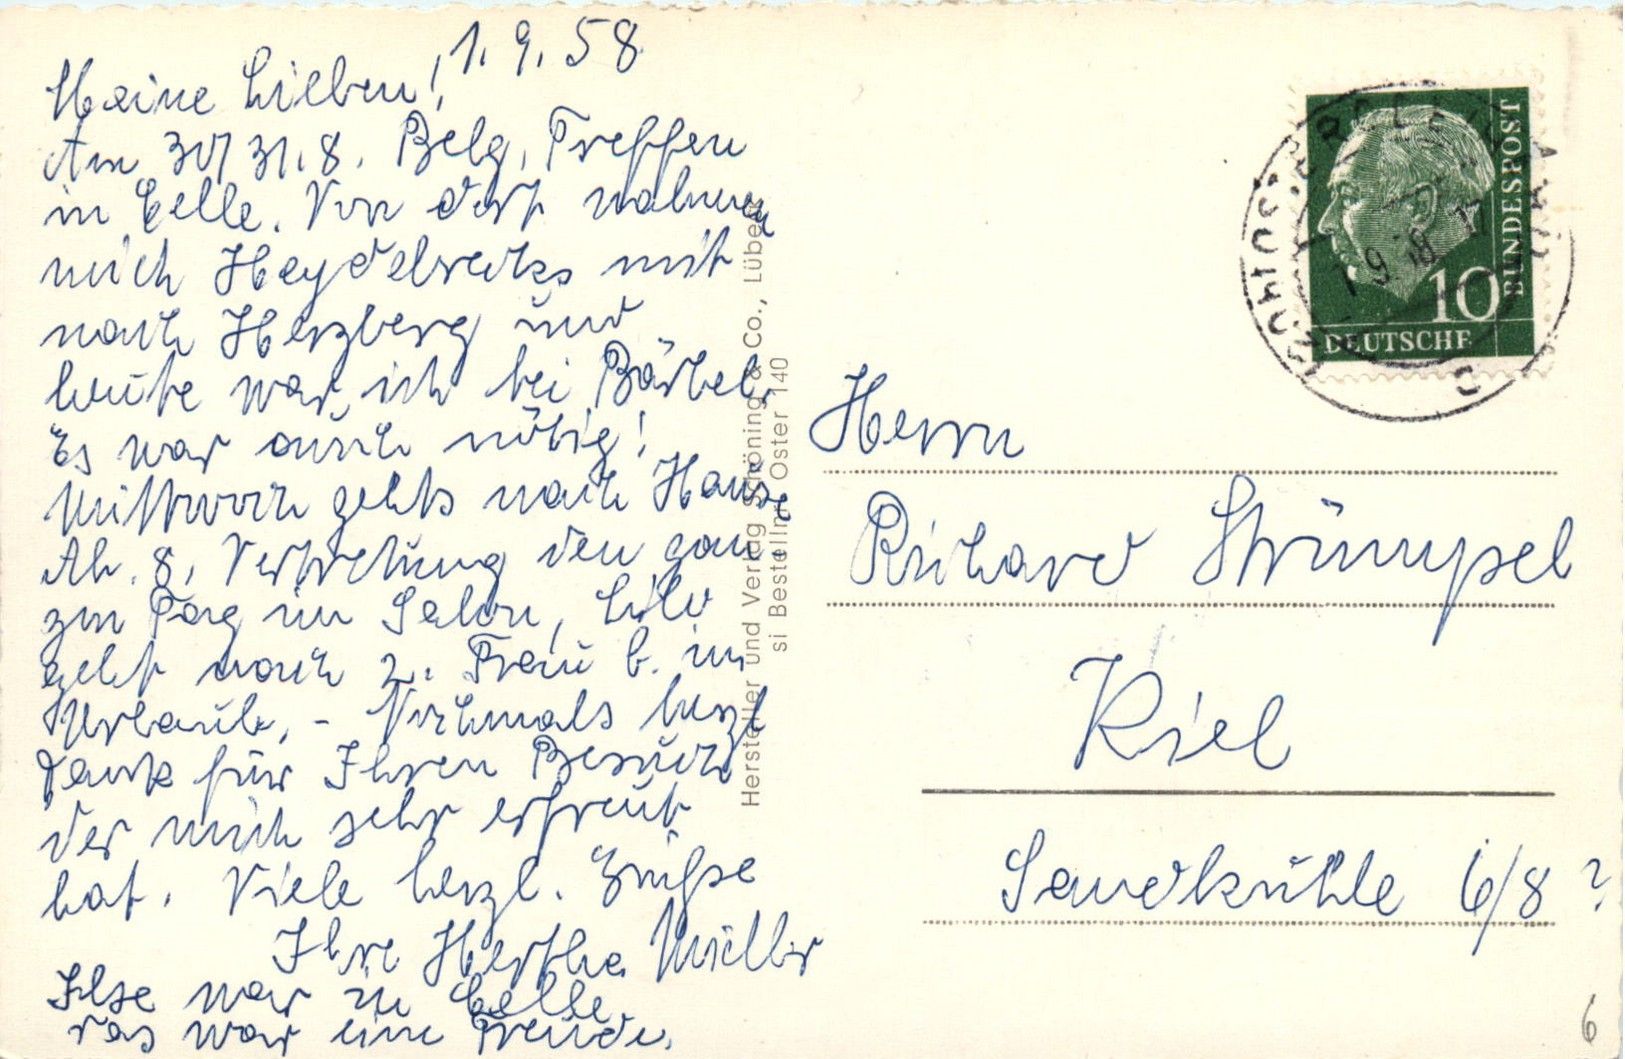 1.9.58
Meine Lieben!
Am 30/31.8. Belg. Treffen
in Celle. Von dort nahmen
mich Heydebrecks mit
nach Herzberg und
heute war ich bei Bärbel,
Es war auch nötig!
Mittwoch gehts nach Hause
Ab. 8. Vertretung den gan
zen Tag im Salon, Lilo
geht nach 2. Frau b. in
Urlaub, - Nochmals herzl
Dank für Ihren Besuch
der mich sehr erfreut
hat. Viele herzl. Grüsse
Ihre Hertha Müller
Ilse war in Celle
das war eine Freude.
Hersteller und Verlag Schöning & Co., Lübeck
si Bestellnr. Oster 140
DEUTSCHE
BUNDESPOST
10
Herrn
Richard Strümpel
Kiel
Sandkuhle 6/8 ?
6